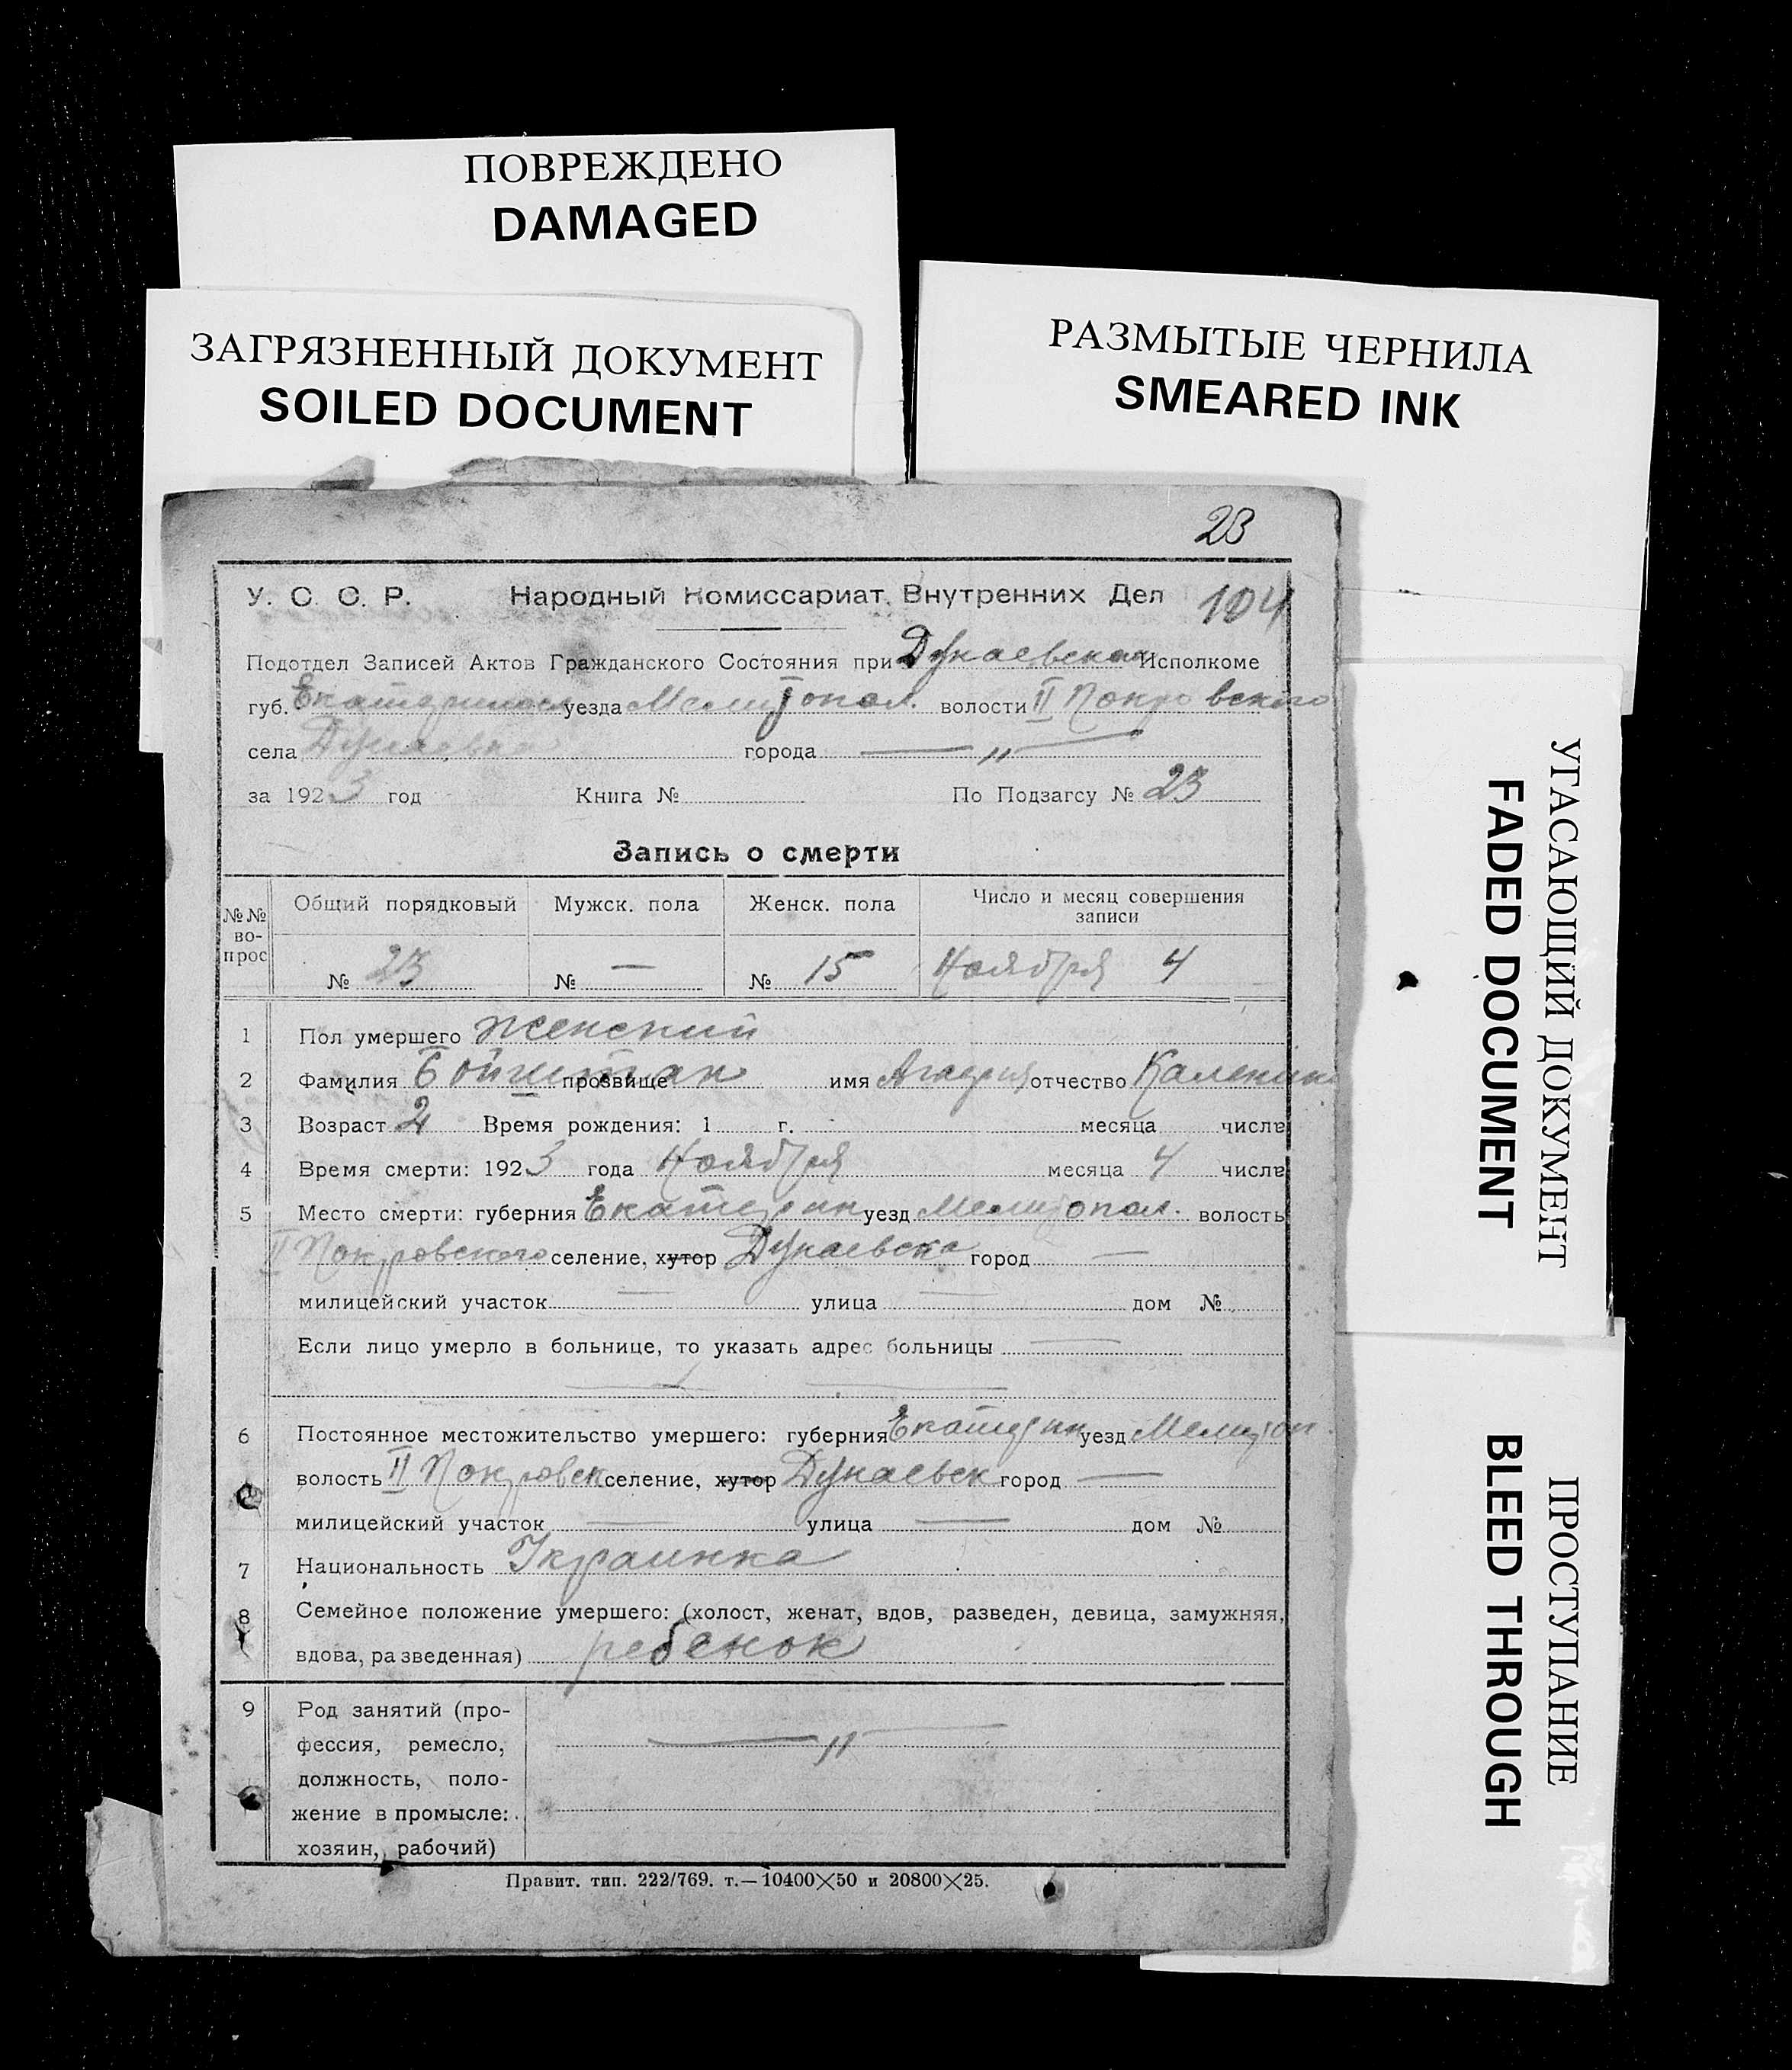 ПОВРЕЖДЕНО
DAMAGED
ЗАГРЯЗНЕННЫЙ ДОКУМЕНТ
SOILED DOCUMENT
РАЗМЫТЫЕ ЧЕРНИЛА
SMEARED INK
УГАСАЮЩИЙ ДОКУМЕНТ
FADED DOCUMENT
ПРОСТУПАНИЕ
BLEED THROUGH
23
У. С. С. Р. Народный Комиссариат Внутренних Дел 104
Подотдел Записей Актов Гражданского Состояния при Дунаевском Исполкоме
губ. Екатеринос уезда Мелитопол. волости II Покровского
села Дунаевка города — " —
за 1923 год Книга № По Подзагсу № 23
Запись о смерти
№№ вопрос
Общий порядковый Мужск. пола Женск. пола Число и месяц совершения записи
№ 23 № — № 15 Ноября 4
1 Пол умершего Женский
2 Фамилия прозвище имя отчество
3 Возраст 2 Время рождения: 1 г. месяца числа
4 Время смерти: 1923 года Ноября месяца 4 числа
5 Место смерти: губерния Екатерин уезд Мелитопол. волость
II Покровского селение, хутор Дунаевка город —
милицейский участок — улица — дом №
Если лицо умерло в больнице, то указать адрес больницы —
6 Постоянное местожительство умершего: губерния Екатерин уезд Мелитоп.
волость II Покровск селение, хутор Дунаевк город —
милицейский участок — улица — дом №
7 Национальность Украинка
8 Семейное положение умершего: (холост, женат, вдов, разведен, девица, замужняя,
вдова, разведенная) ребенок
9 Род занятий (про-
фессия, ремесло, — " —
должность, поло-
жение в промысле:
хозяин, рабочий)
Правит. тип. 222/769. т.—10400×50 и 20800×25.